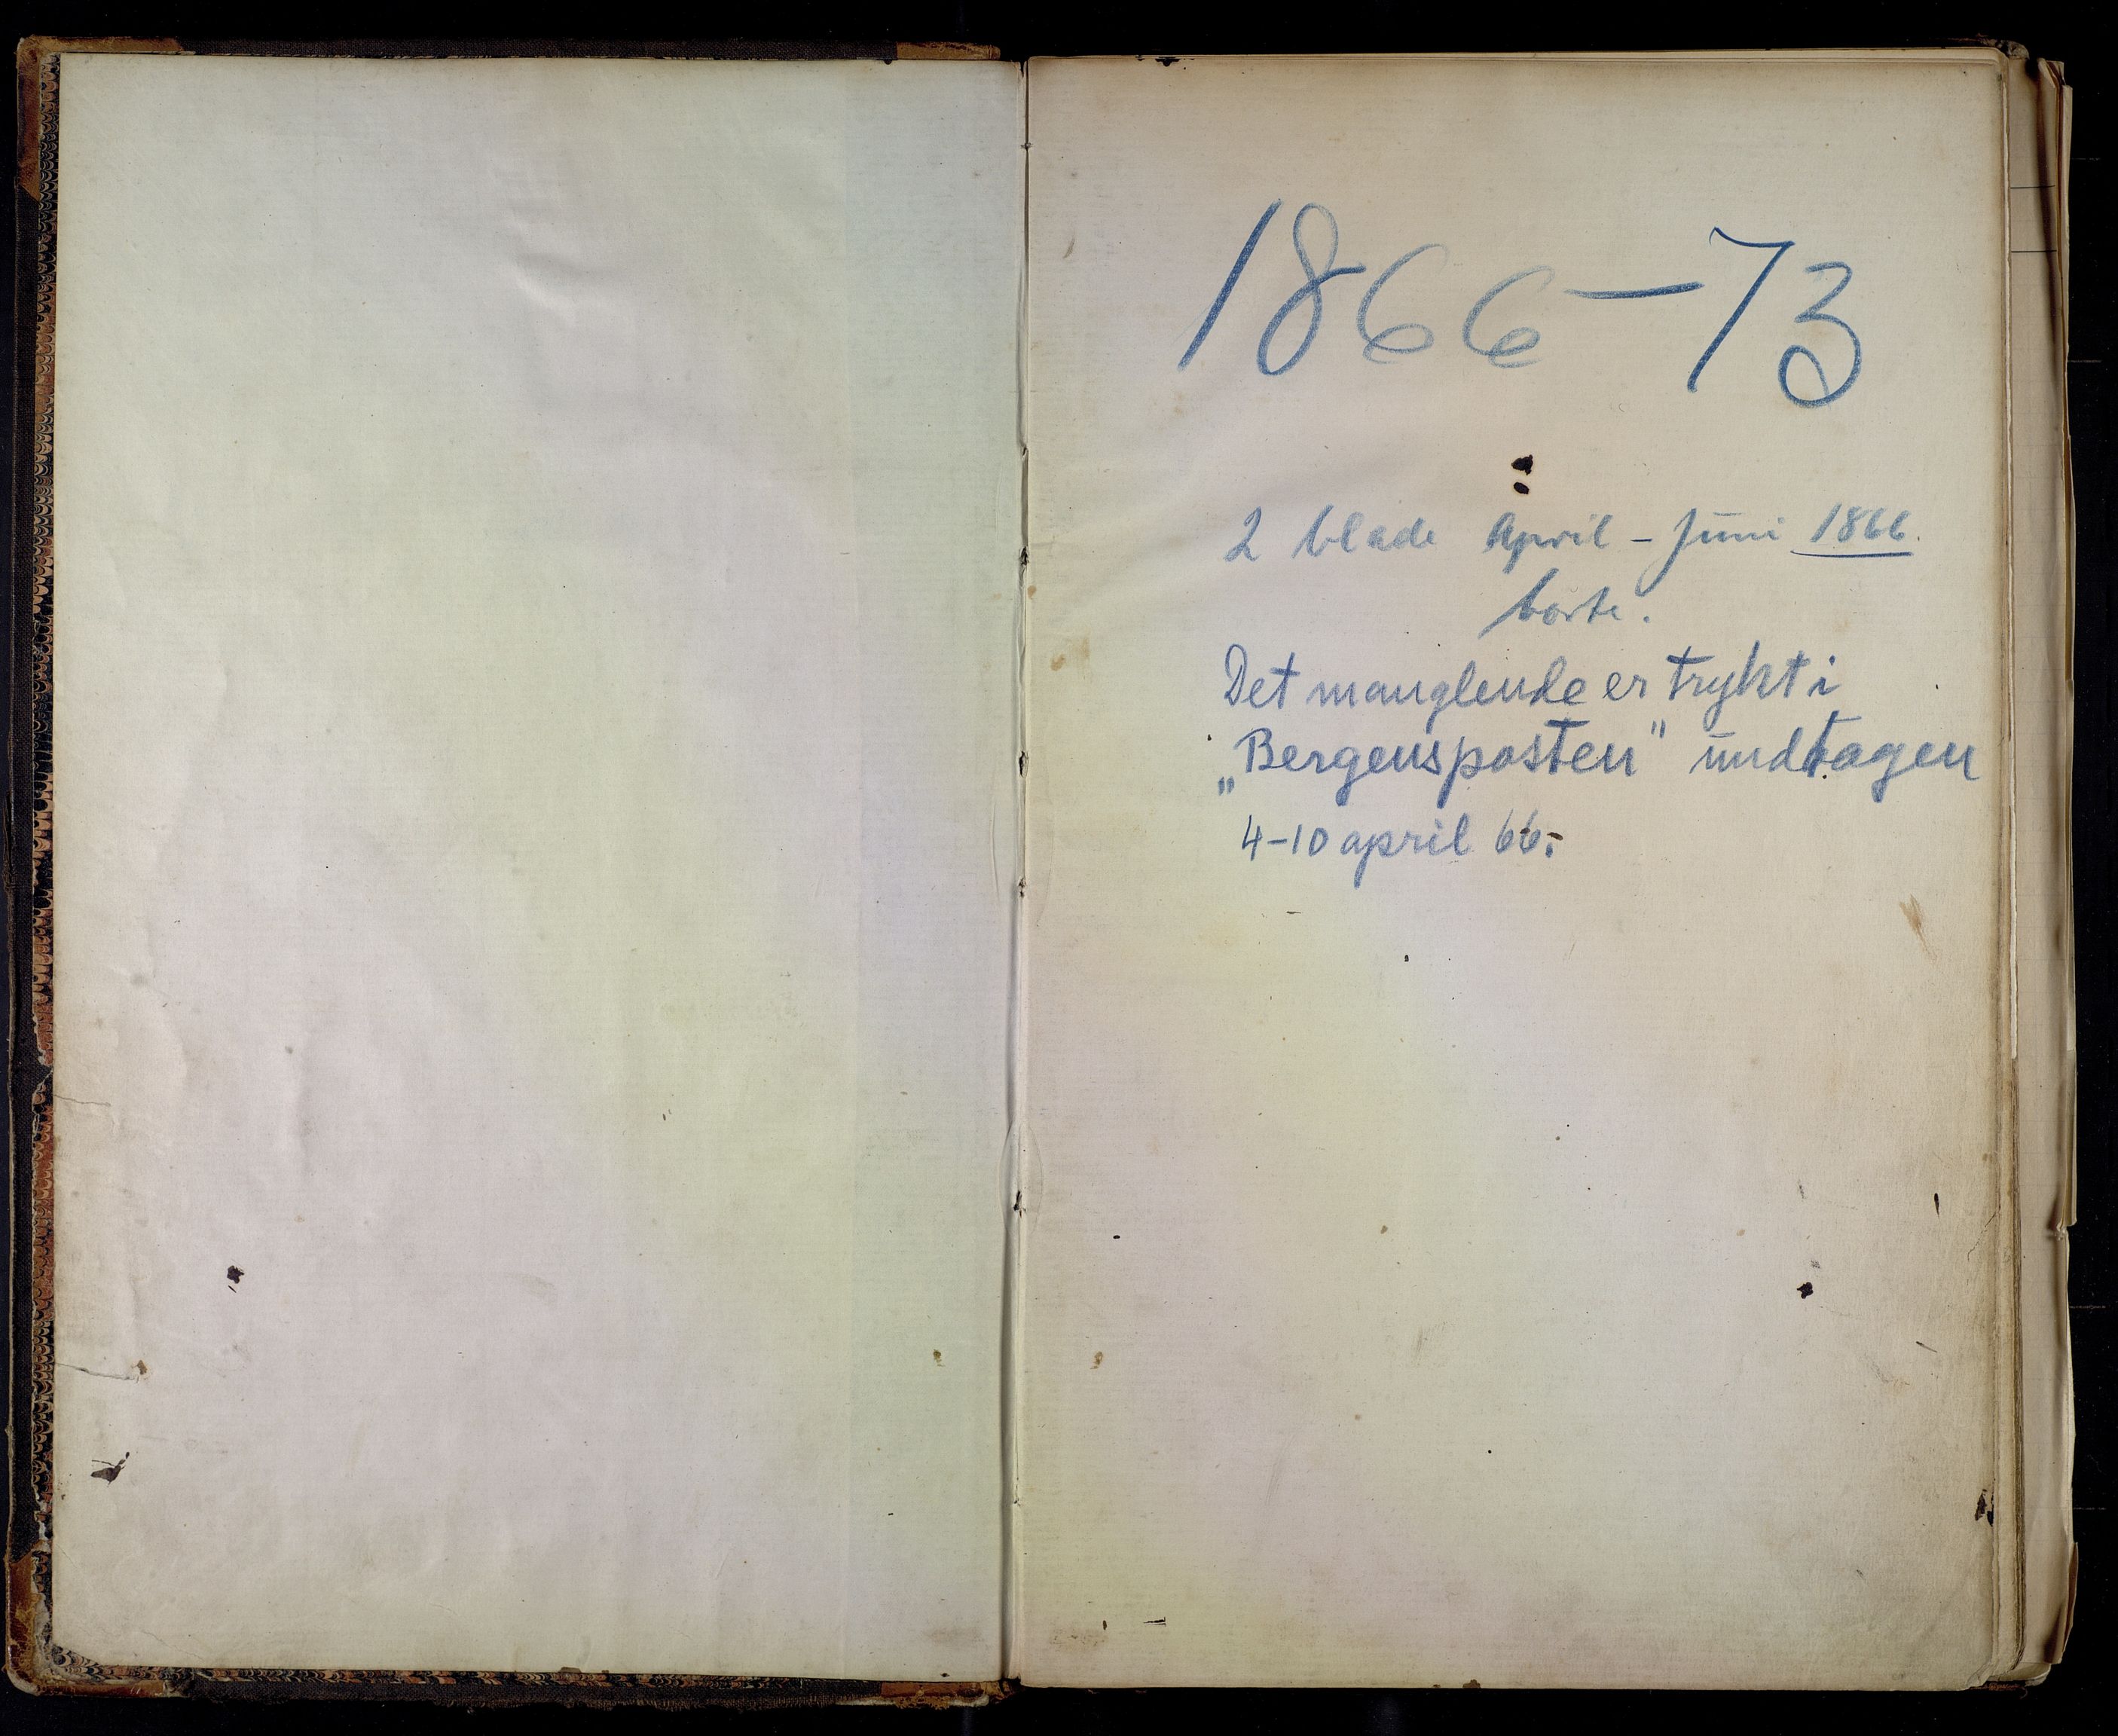 1866-73
2 blade April - Juni 1866.
borte.
Det manglende er trykt i
„Bergensposten" undtagen
4-10 april 66.